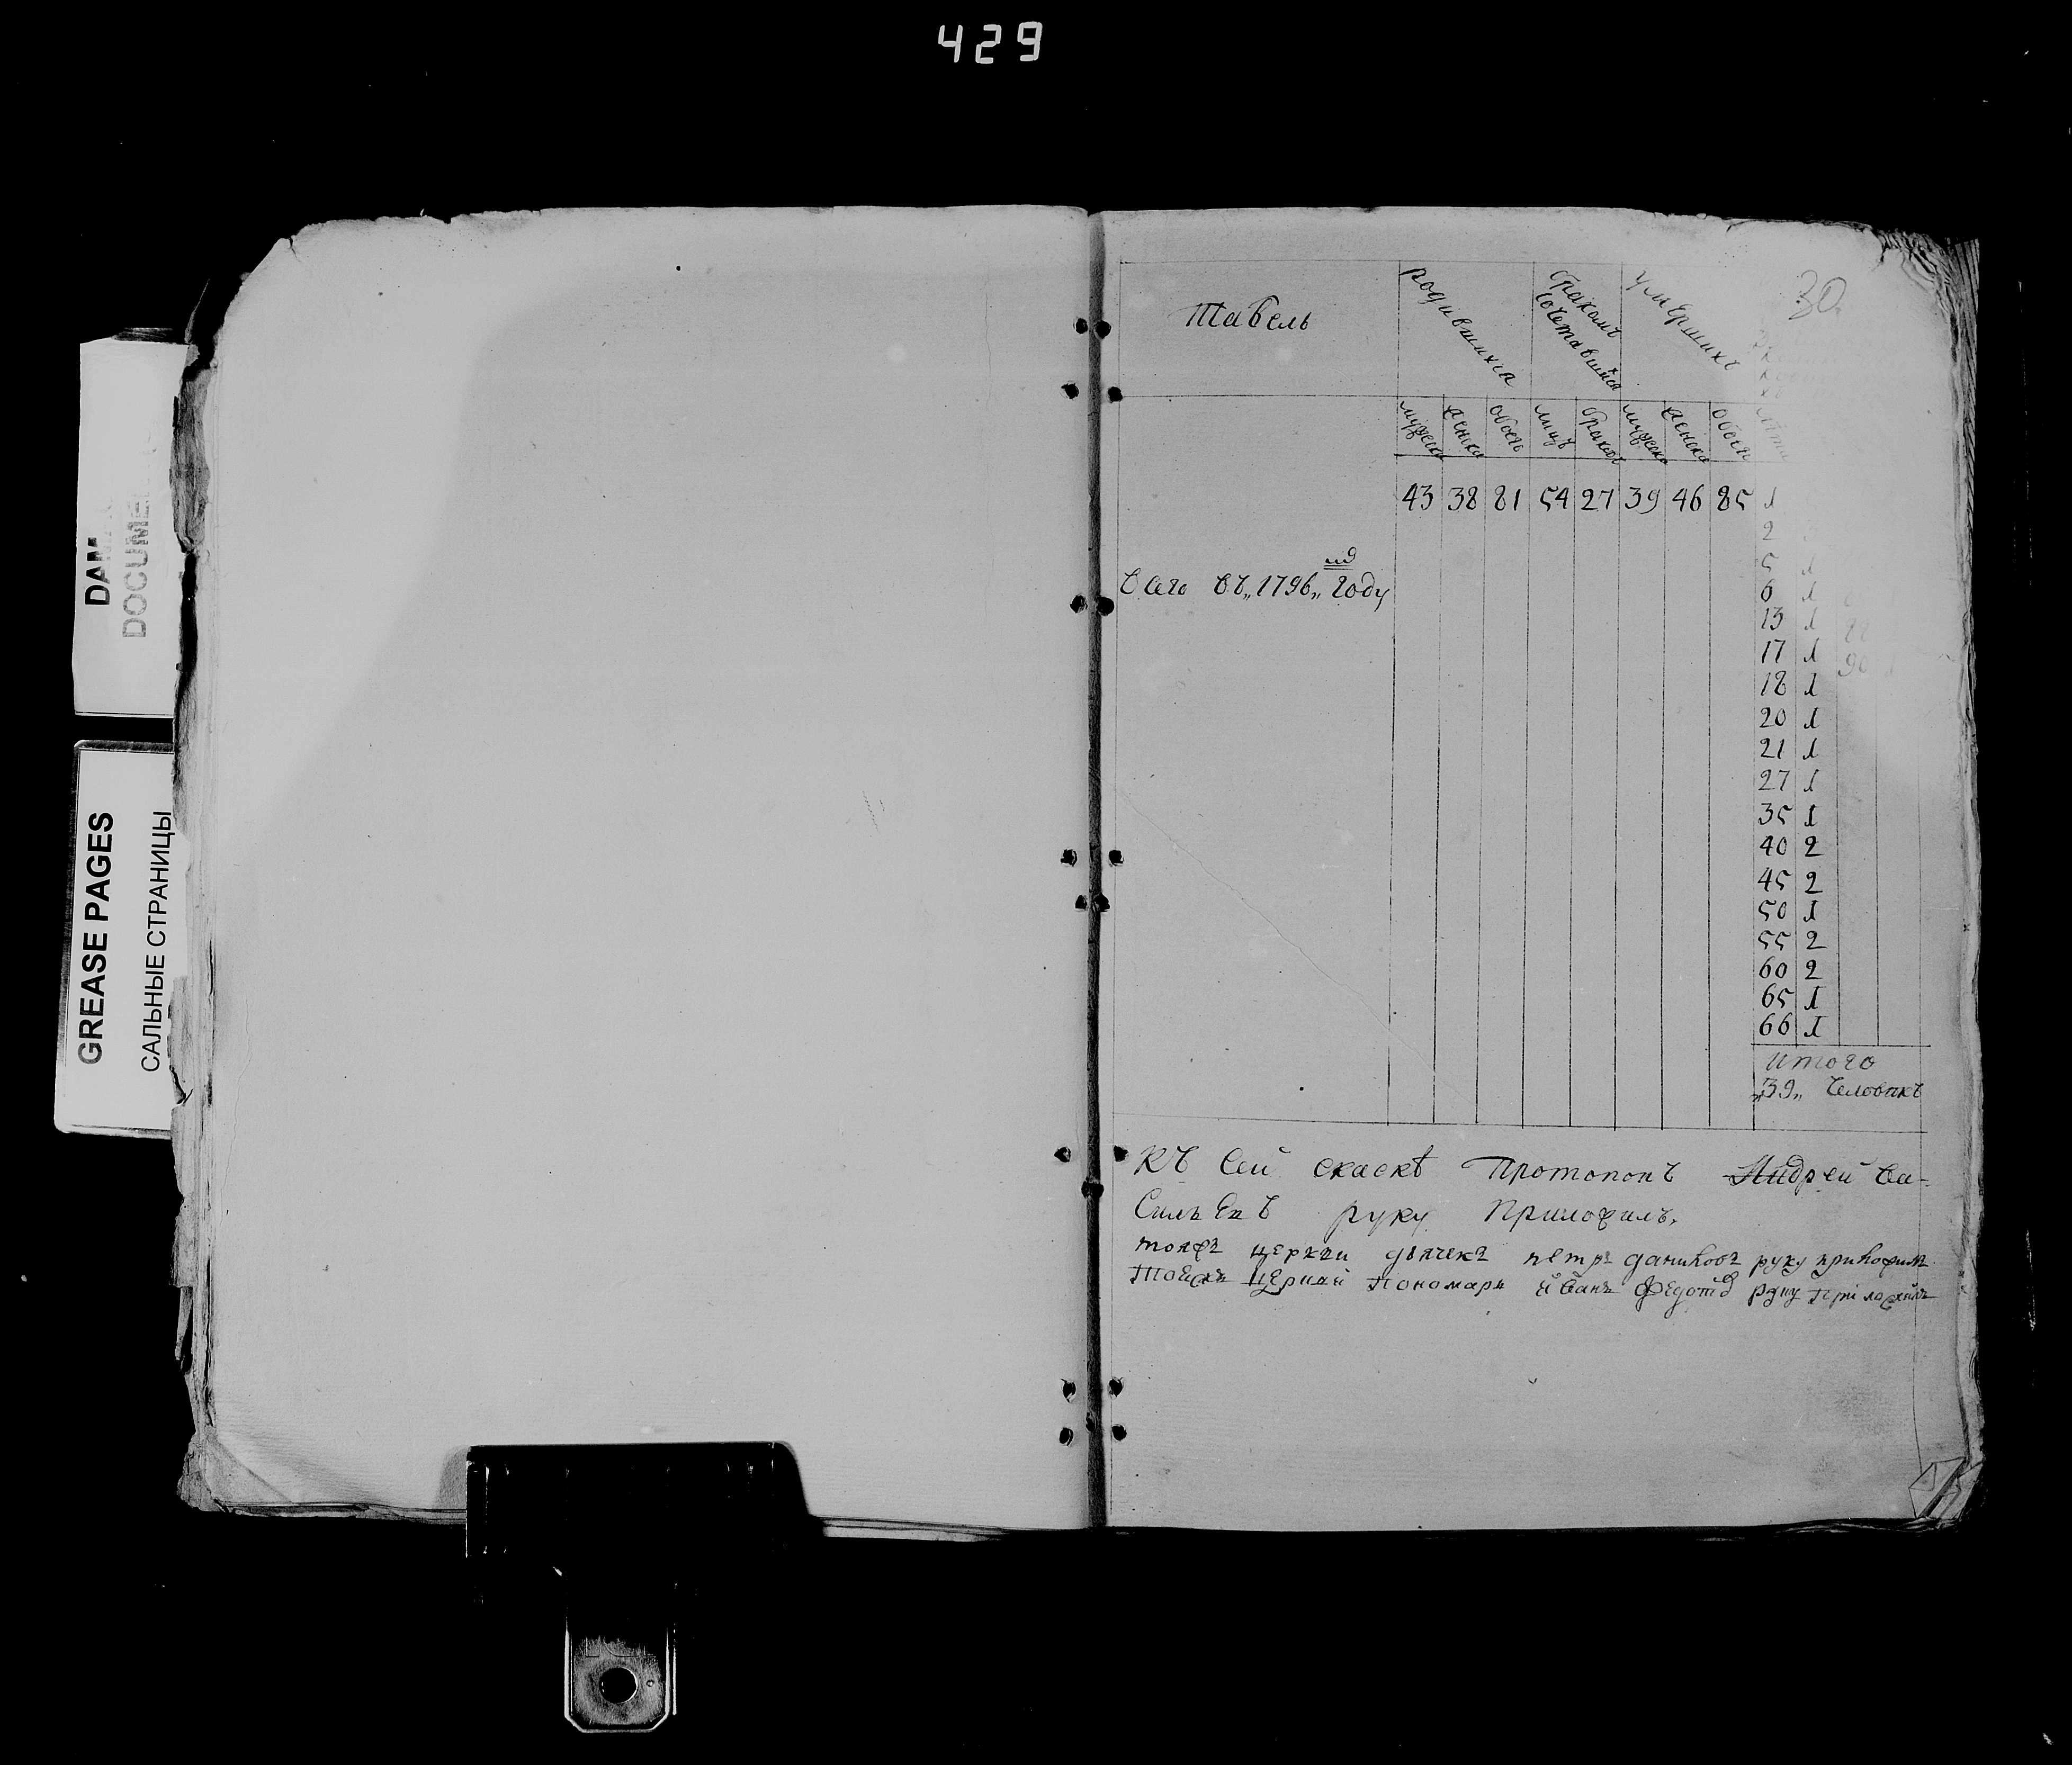 429
DAM
DOCUME
GREASE PAGES
САЛЬНЫЕ СТРАНИЦЫ
30
Табель
родившихся
бракомъ сочетавшийся
умершихъ
мужеска
женска
обоегъ
лицъ
браковъ
мужеска
женска
обоегъ
43 38 81 54 27 39 46 85
всего въ „1796„ мъ году
1
2
5 1
6 1
13 1
17 1
18 1
20 1
21 1
27 1
35 1
40 2
45 2
50 1
55 2
60 2
65 1
66 1
90
итого
„39„ человѣкъ
Къ сей скаскѣ Протопопъ Андрей Ва-
сильевъ руку приложилъ.
тояжъ церкви дьячекъ петръ даниловъ руку приложилъ
Тоежъ церкви пономарь иванъ Федотовъ руку приложилъ